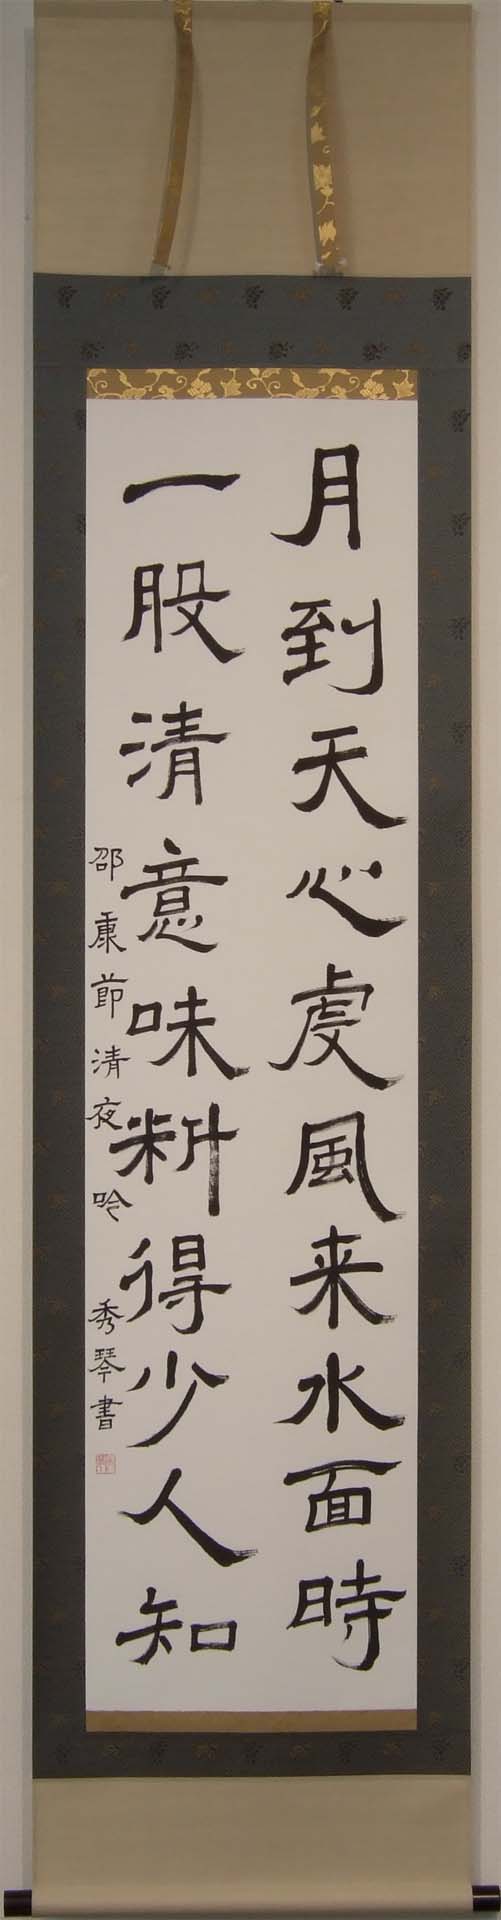 月到天心処風来水面時
一股清意味料得少人知
邵康節清夜吟 秀琴書